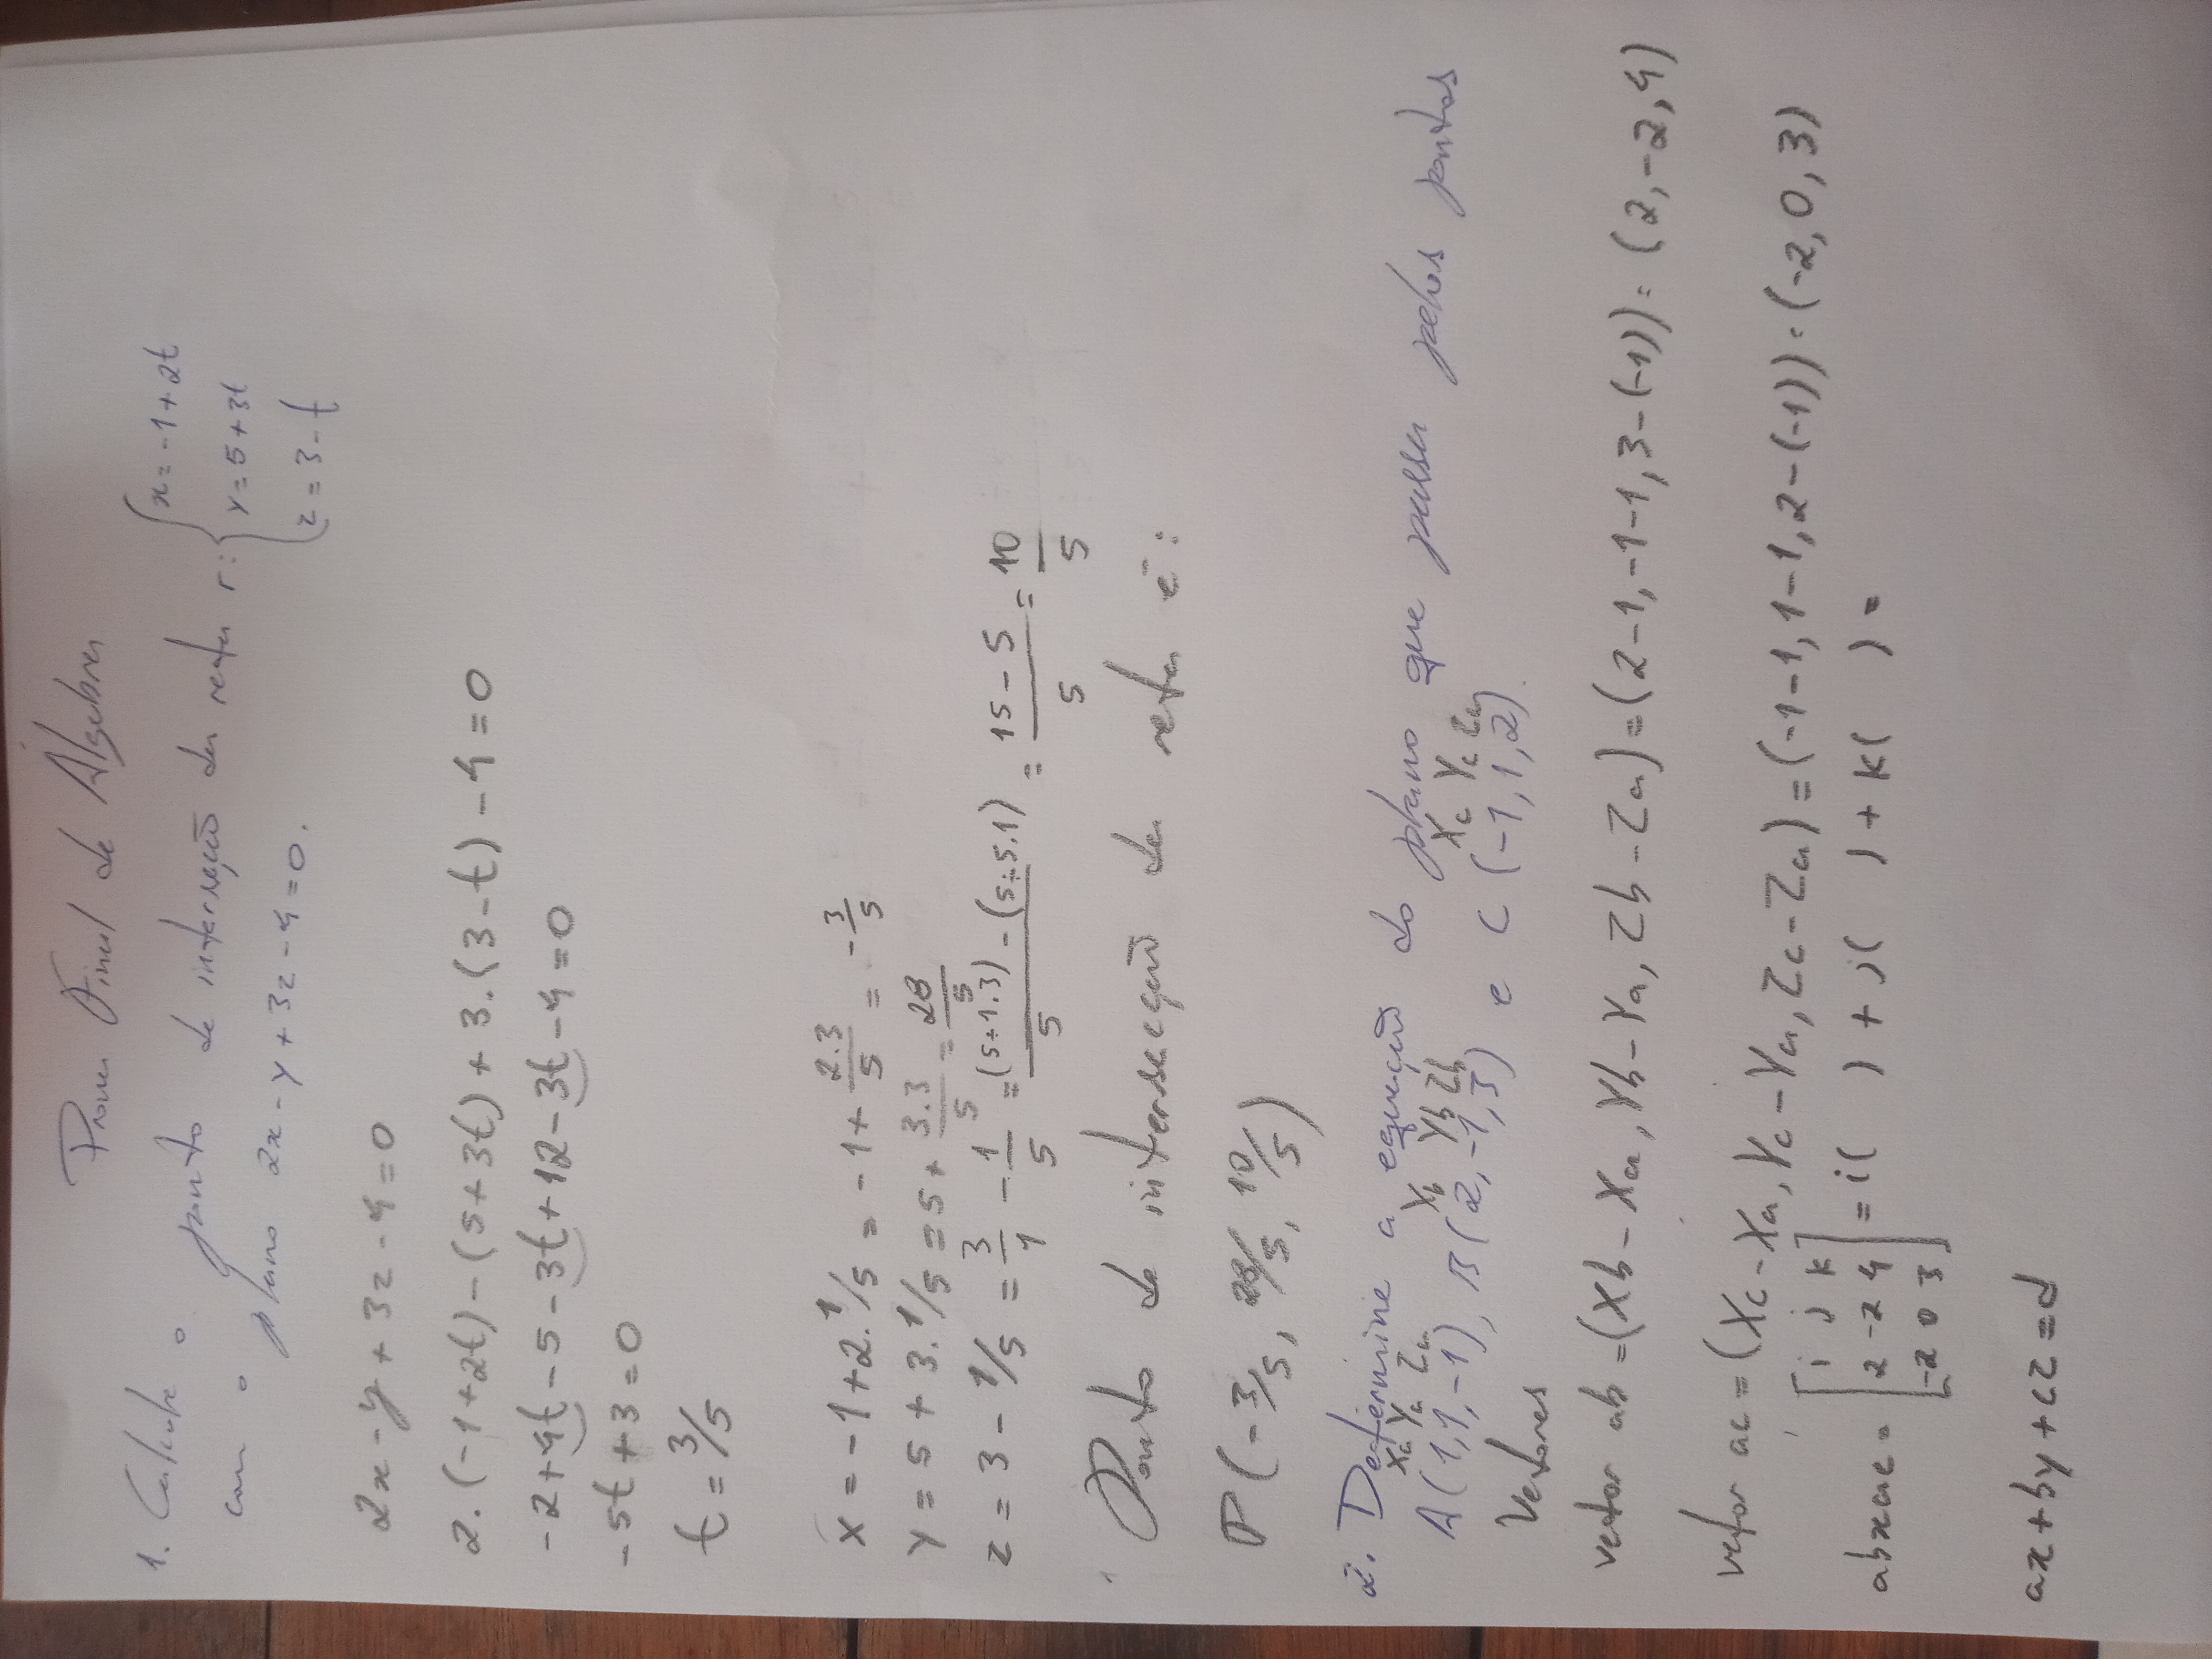 Prova Final de Álgebra
1. Calcule o ponto de interseção da reta r: { x = -1 + 2t
y = 5 + 3t
z = 3 - t
com o plano 2x - y + 3z - 4 = 0.
2x - y + 3z - 4 = 0
2.(-1+2t) - (5+3t) + 3.(3-t) - 4 = 0
-2 + 4t - 5 - 3t + 12 - 3t - 4 = 0
-5t + 3 = 0
t = 3/5
x = -1 + 2.1/5 = -1 + 2.3/5 = -3/5
y = 5 + 3.1/5 = 5 + 3.3/5 = 28/5
z = 3 - 1/5 = 3/1 - 1/5 = (5÷1.3) - (5÷5.1)/5 = 15 - 5/5 = 10/5
Ponto de intersecção da reta é:
P (-3/5, 28/5, 10/5)
2. Determine a equação do plano que passa pelos pontos
Xa Ya Za Xb Yb Zb Xc Yc Za
A(1,1,-1), B(2,-1,3) e C (-1,1,2).
Vetores
vetor ab = (Xb - Xa, Yb - Ya, Zb - Za) = (2-1, -1-1, 3-(-1)) = (2,-2,4)
vetor ac = (Xc - Xa, Yc - Ya, Zc - Za) = (-1-1, 1-1, 2-(-1)) = (-2,0,3)
abxac = [i j k
2 -2 4
-2 0 3] = i( ) + j( ) + k( ) =
ax + by + cz = d